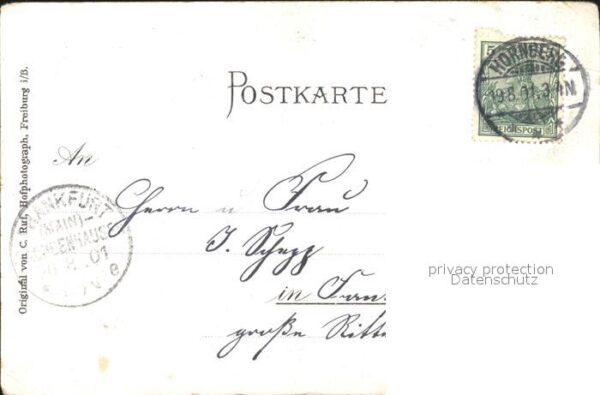 POSTKARTE
5
HORNBERG
19.8.01.3-4N
REICHSPOST
An
Herrn u Frau
J. Schepp
in Fran
große Ritte
ANKFURT
(MAIN)-
01
Original von C. Ruf, Hofphotograph, Freiburg i/B.
privacy protection
Datenschutz